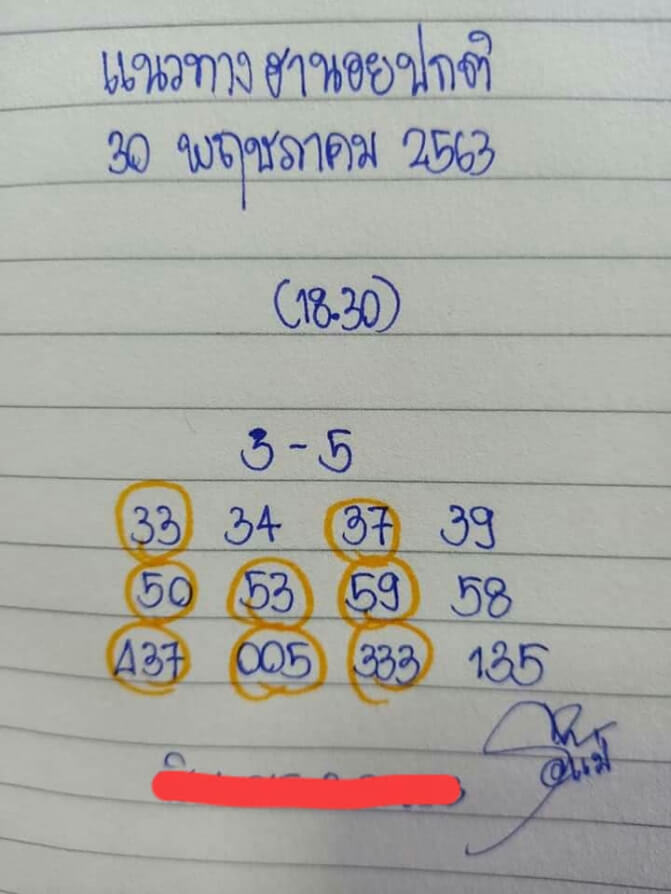 แนวทาง ฮานอยปกติ
30 พฤษภาคม 2563
(18.30)
3 - 5
33 34 37 39
50 53 59 58
437 005 333 135
@แม่